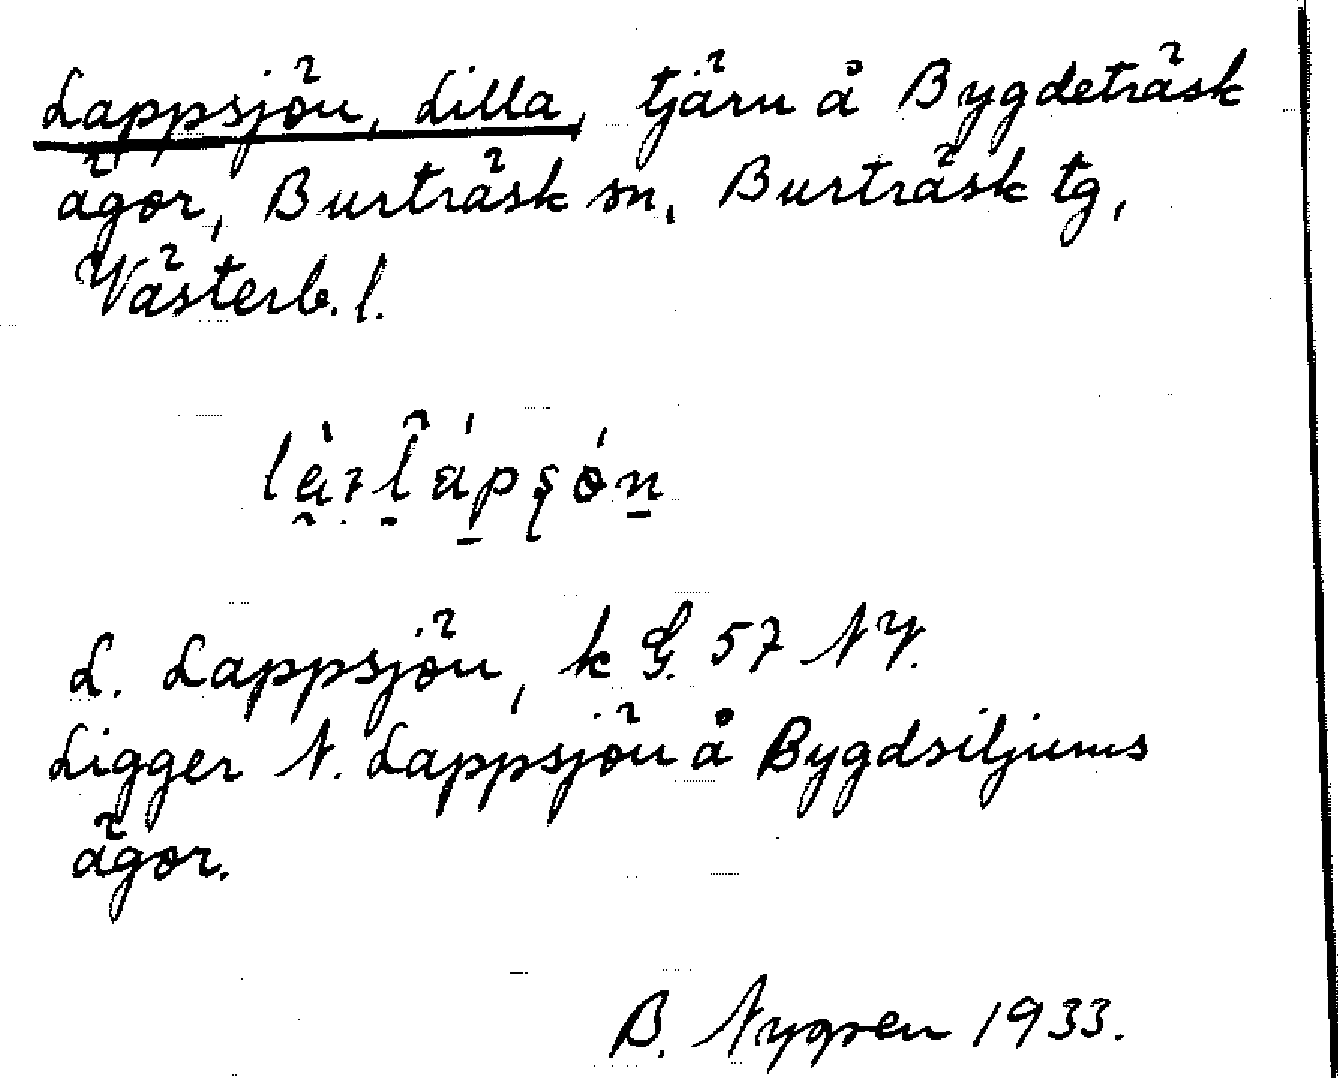 Lappsjön, Lilla, tjärn å Bygdeträsk
ägor, Burträsk sn, Burträsk tg,
Västerb. l.
L. Lappsjön, k G. 57 NV.
Ligger N. Lappsjön å Bygdsiljums
ägor.
B. Nygren 1933.